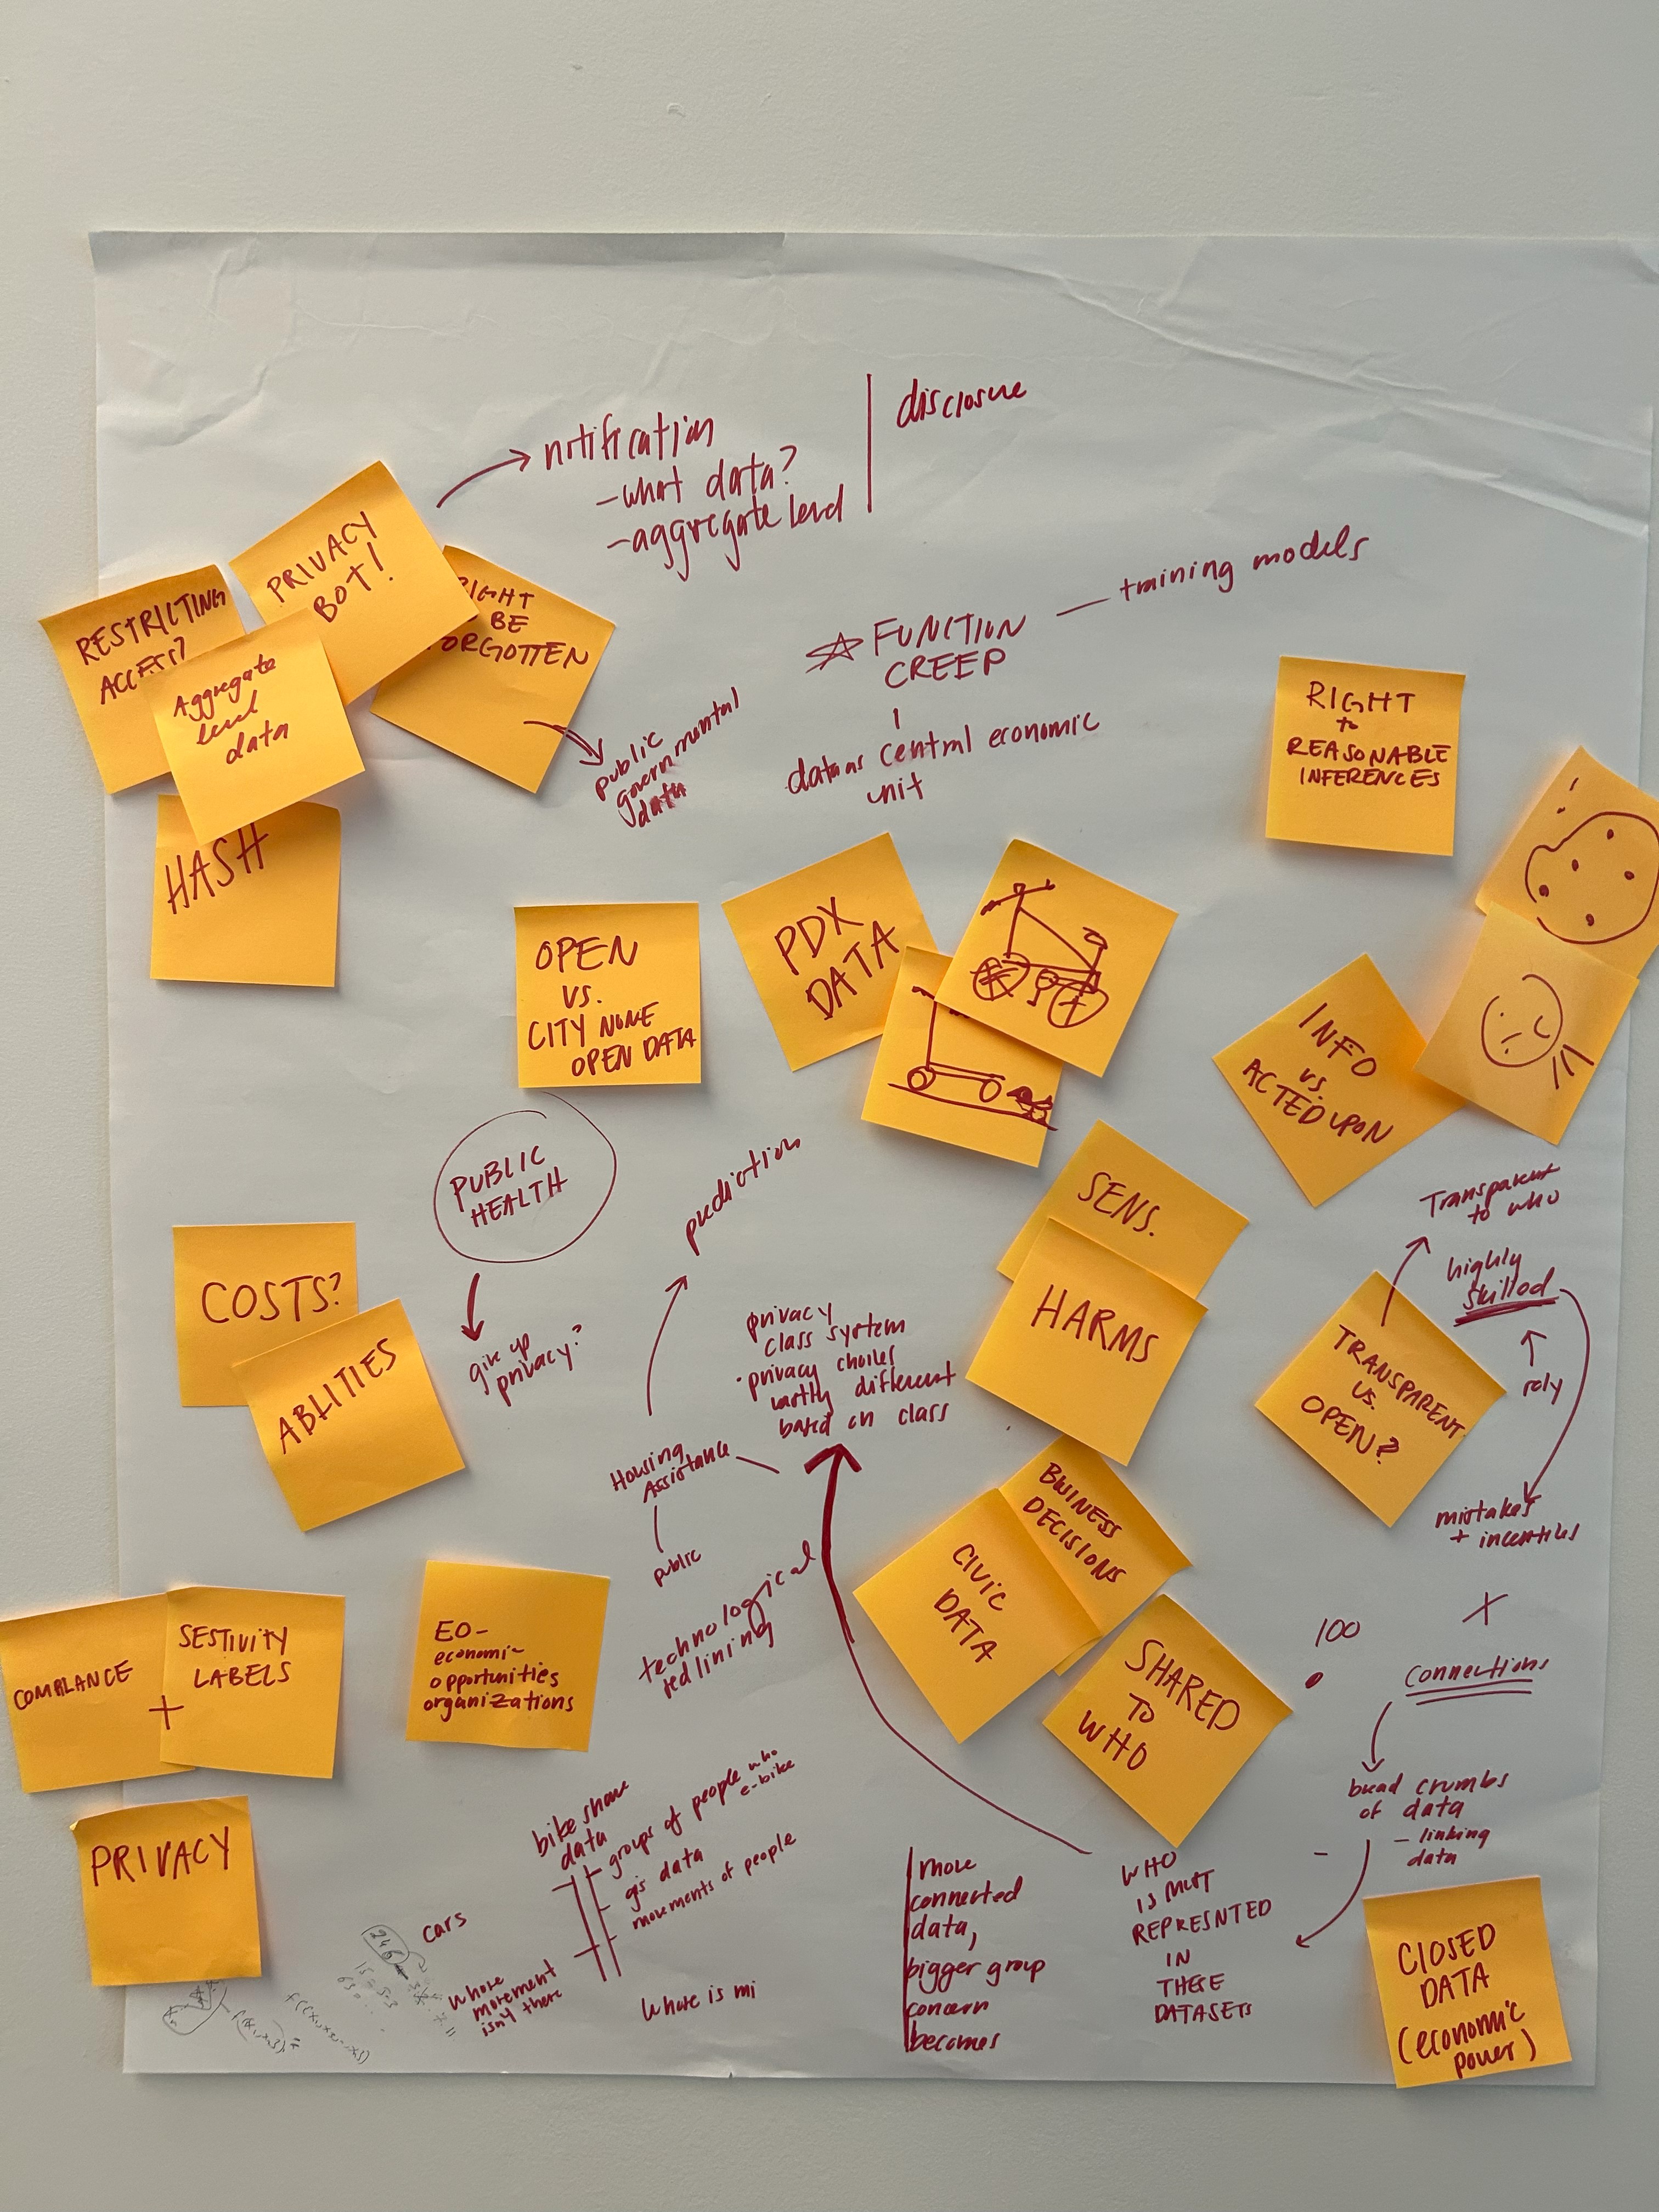 notification
-what data?
-aggregate level
disclosure
PRIVACY
BOT!
RESTRICTING
ACCESS?
RIGHT
BE
FORGOTTEN
Aggregate
level
data
HASH
public
governmental
data
FUNCTION
CREEP
training models
data as central economic
unit
RIGHT
to
REASONABLE
INFERENCES
OPEN
VS.
CITY NONE
OPEN DATA
PDX
DATA
INFO
vs.
ACTED UPON
PUBLIC
HEALTH
give up
privacy?
prediction
SENS.
HARMS
Transparent
to who
highly
skilled
rely
TRANSPARENT
VS.
OPEN?
mistakes
+ incentives
COSTS?
ABLITIES
privacy
class system
privacy choices
vastly different
based on class
Housing
Assistance
public
technological
redlining
BUSINESS
DECISIONS
CIVIC
DATA
SHARED
TO
WHO
COMPLANCE
+
SESTIVITY
LABELS
EO-
economic
opportunities
organizations
100
+
connections
bread crumbs
of data
- linking
data
PRIVACY
bike share
data
groups of people who
e-bike
gis data
movements of people
cars
whose
movement
isn't there
Where is mi
more
connected
data,
bigger group
concern
becomes
WHO
IS MOST
REPRESNTED
IN
THESE
DATASETS
CLOSED
DATA
(economic
power)
246